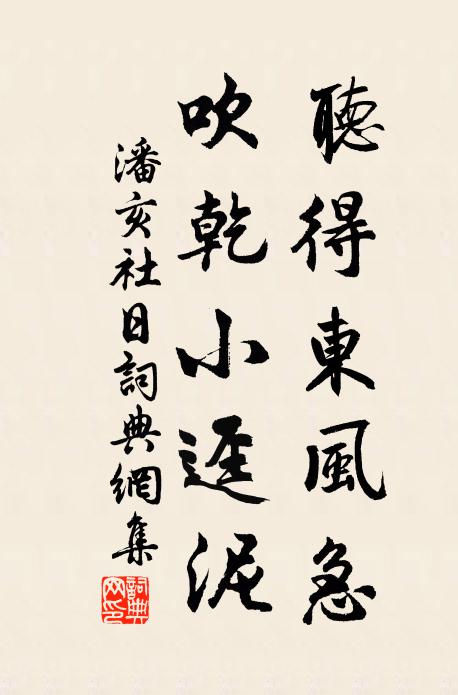 聽得東風急
吹乾小逕泥
潘亥社日詞典網集
詞典
网印